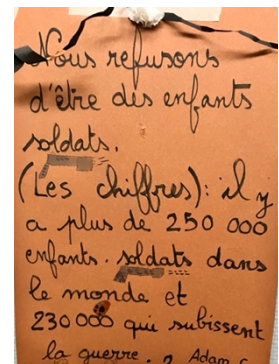 Nous refusons
d'être des enfants
soldats.
(Les chiffres): il y
a plus de 250 000
enfants. soldats dans
le monde et
230 000 qui subissent
la guerre. 2 Adam C